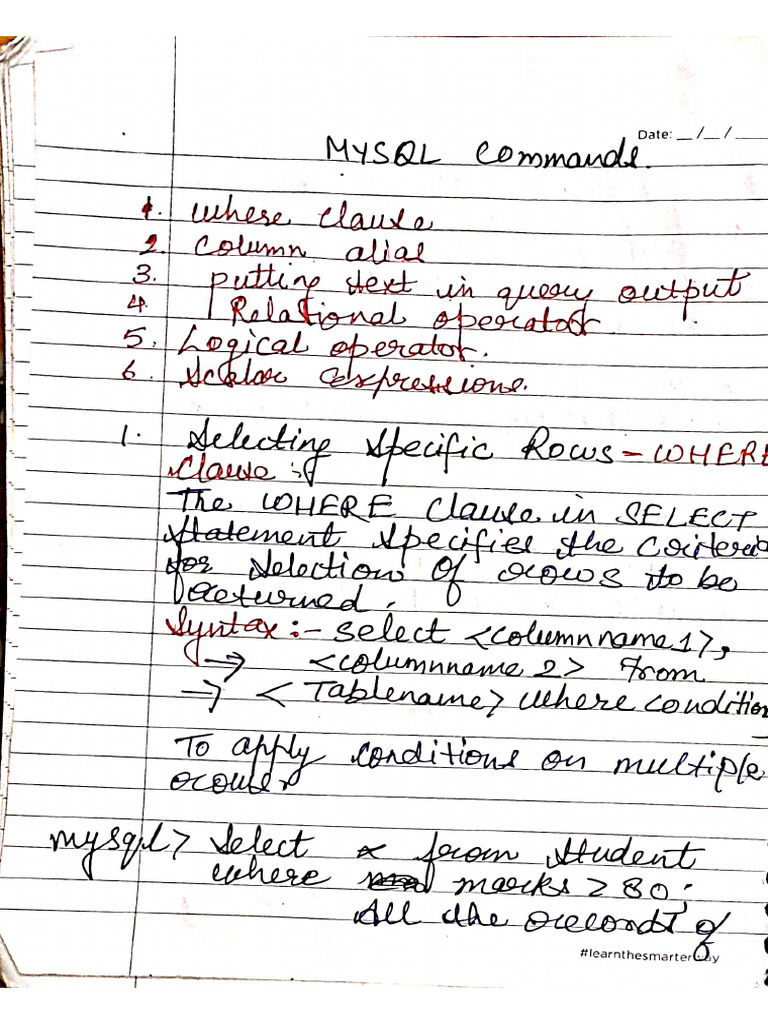 Date: _/_/__
MYSQL Commands.
1. Where clause
2. Column alias
3. putting text in query output
4. Relational operator
5. Logical operator.
6. Scalar expressions.
1. Selecting Specific Rows - WHERE
Clause :-
The WHERE Clause in SELECT
Statement specifies the criteria
for selection of rows to be
returned.
Syntax :- select <columnname1>,
→ <columnname 2> from
→ < Tablename> where condition
To apply conditions on multiple
mysql> Select * from student
where marks > 80;
All the records of
#learnthesmarterway